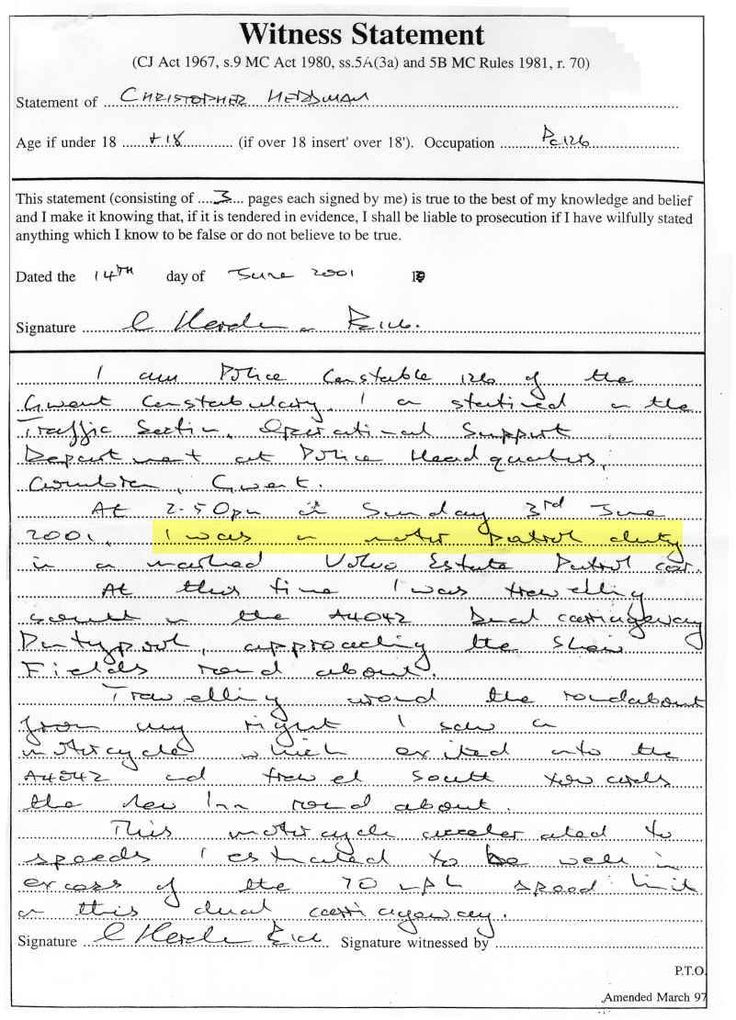 Witness Statement
(CJ Act 1967, s.9 MC Act 1980, ss.5A(3a) and 5B MC Rules 1981, r. 70)
Statement of CHRISTOPHER HERDMAN
Age if under 18 +18 (if over 18 insert' over 18'). Occupation Pc126
This statement (consisting of ....3... pages each signed by me) is true to the best of my knowledge and belief
and I make it knowing that, if it is tendered in evidence, I shall be liable to prosecution if I have wilfully stated
anything which I know to be false or do not believe to be true.
Dated the 14TH day of June 2001 19
Signature C Herdman Pc126.
I am Police Constable 126 of the
Gwent Constabulary. I am stationed on the
Traffic Section, Operational Support
Department at Police Headquarters,
Cwmbran, Gwent.
At 2.50pm on Sunday 3rd June
2001, I was on motor patrol duty
in a marked Volvo Estate Patrol car.
At this time I was travelling
south on the A4042 Dual carriageway
Pontypool, approaching the
Fields roundabout.
Travelling round the roundabout
from my right I saw a
motorcycle which exited onto the
A4042 and travel South towards
the New Inn roundabout.
This motorcycle accelerated to
speeds I estimated to be well in
excess of the 70 mph speed limit
on this dual carriageway.
Signature C Herdman Pc126 Signature witnessed by
P.T.O.
Amended March 97